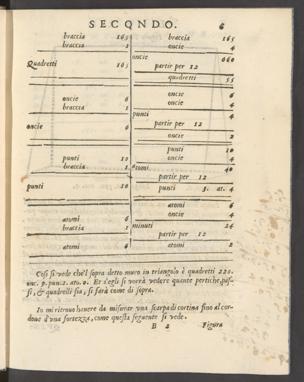 SECONDO. 6
braccia 165
braccia 1
Quadretti 165
oncie 6
braccia 1
oncie 6
punti 10
braccia 1
punti 10
atomi 6
braccia 1
atomi 6
braccia 165
oncie 4
oncie 660
partir per 12
quadretti 55
oncie 6
oncie 4
punti 4
partir per 12
oncie 2
punti 10
oncie 4
atomi 40
partir per 12
punti 3. at. 4
atomi 6
oncie 4
minuti 24
partir per 12
atomi 2
Cosi si vede che'l sopra detto muro in triangolo è quadretti 220.
onc. 9. pun. 2. ato. 0. Et s'egli si vorrà vedere quante pertiche, pas-
si, & quadretti sia, si farà come di sopra.
In mi ritruo hauere da misurar vna scarpa di cortina fino al cor-
done d'vna fortezza, come questa seguente si vede.
B 2 Figura